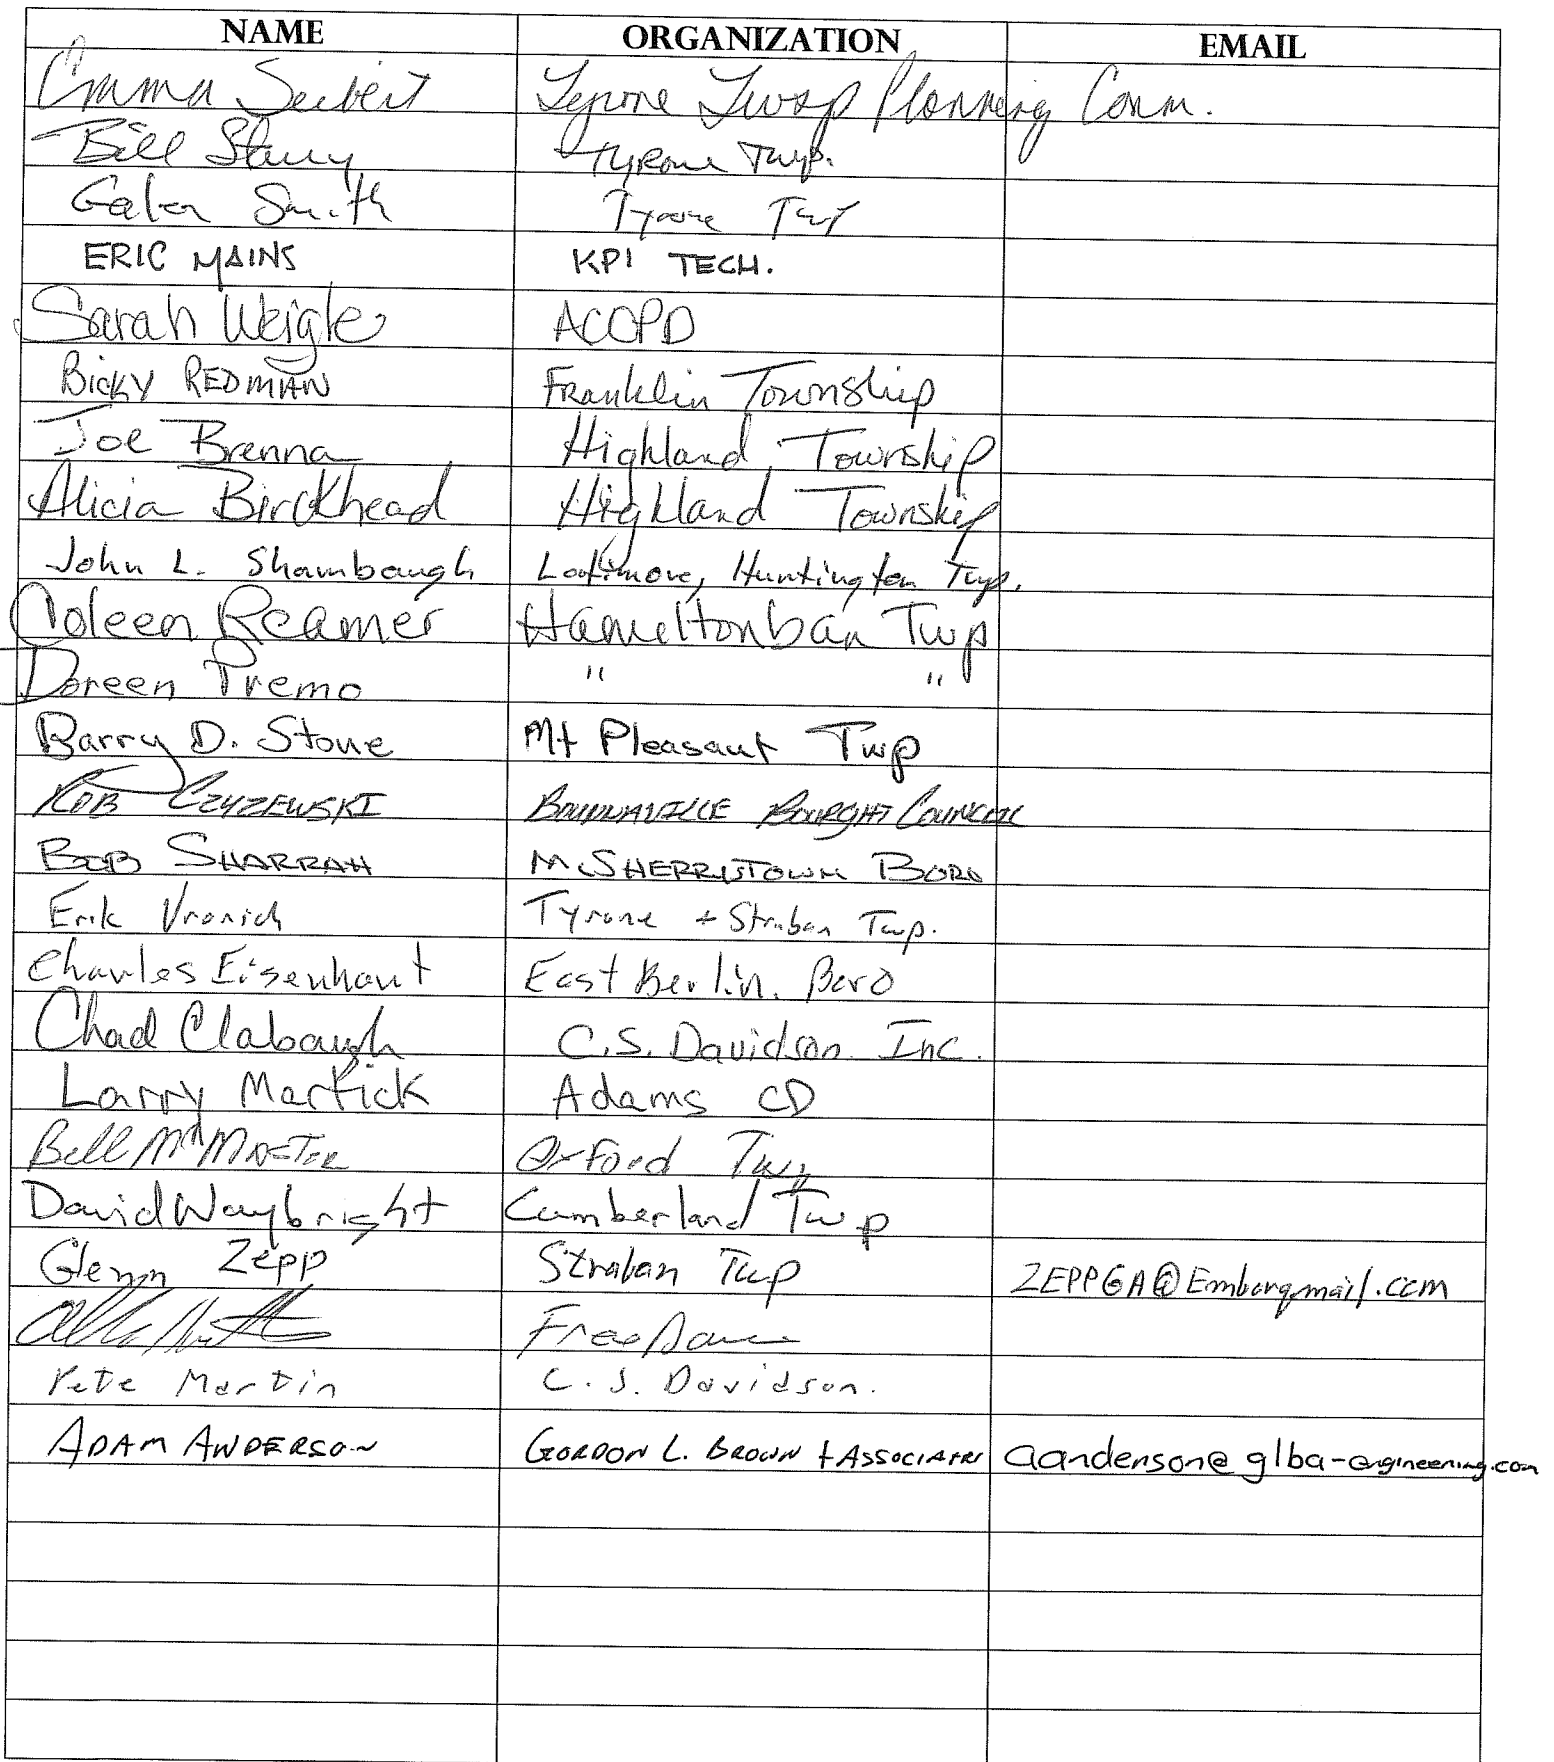 NAME ORGANIZATION EMAIL
Emma Seibert Tyrone Twsp Planning Comm.
Bill Stary Tyrone Twp.
Galen Smith Tyrone Twp
ERIC MAINS KPI TECH.
Sarah Weigle ACOPD
Bicky REDMAN Franklin Township
Joe Brenna Highland Township
Alicia Birckhead Highland Township
John L. Shambaugh Latimore, Huntington Twps.
Coleen Reamer Hamiltonban Twp
Doreen Premo " "
Barry D. Stone Mt Pleasant Twp
ROB CZYZEWSKI COUNCIL
BOB SHARRAH McSHERRYSTOWN BORO
Erik Vranich Tyrone + Straban Twp.
Charles Eisenhart East Berlin. Boro
Chad Clabaugh C.S. Davidson Inc.
Larry Martick Adams CD
Bill McMaster Oxford Twp
David Waybright Cumberland Twp
Glenn Zepp Straban Twp ZEPPGA@Embarqmail.com
Pete Martin C.S. Davidson.
ADAM ANDERSON GORDON L. BROWN + ASSOCIATES aanderson@glba-engineering.com